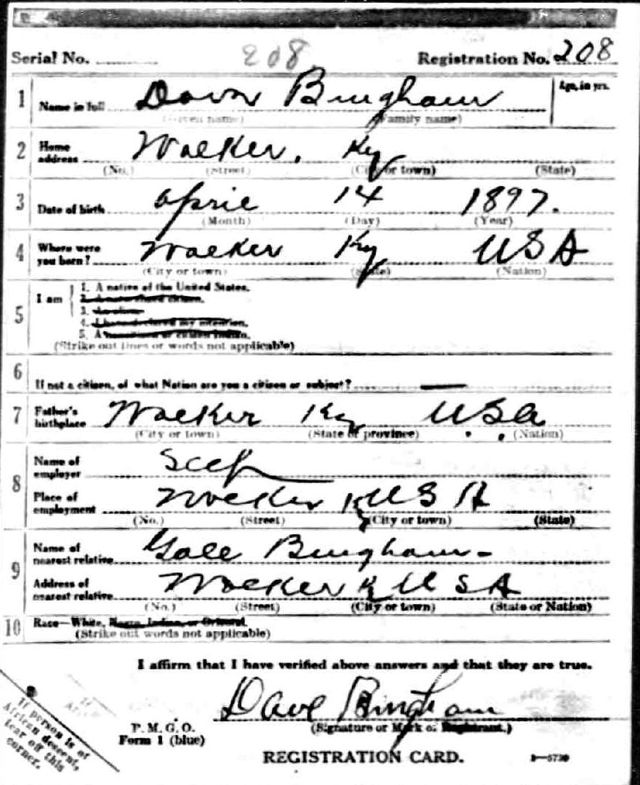 Serial No. 208 Registration No. 208
1 Name in full Davor Bingham Age, in yrs.
(Given name) (Family name)
2 Home address Walker, Ky
(No.) (Street) (City or town) (State)
3 Date of birth April 14 1897.
(Month) (Day) (Year)
4 Where were you born? Walker Ky USA
(City or town) (State) (Nation)
5 I am
1. A native of the United States.
2. A naturalized citizen.
3. An alien.
4. I have declared my intention.
5. A
(Strike out lines or words not applicable)
6 If not a citizen, of what Nation are you a citizen or subject?
7 Father's birthplace Walker Ky USA
(City or town) (State or province) (Nation)
8 Name of employer Self
Place of employment Walker K USA
(No.) (Street) (City or town) (State)
9 Name of nearest relative Bingham
Address of nearest relative Walker K USA
(No.) (Street) (City or town) (State or Nation)
10 Race—White, Negro, Indian, or Oriental.
(Strike out words not applicable)
I affirm that I have verified above answers and that they are true.
Dave Bingham
P. M. G. O. (Signature or Mark of Registrant.)
Form 1 (blue)
REGISTRATION CARD.
If person is of
African descent,
tear off this
corner.